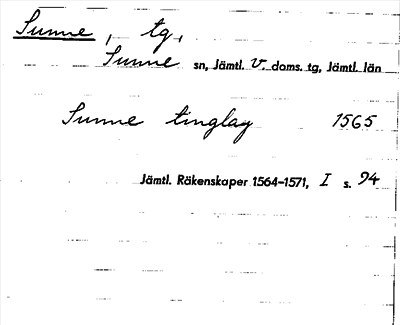 Sunne, tg,
Sunne sn, Jämtl. V. doms. tg, Jämtl. län
Sunne tinglag 1565
Jämtl. Räkenskaper 1564–1571, I s. 94